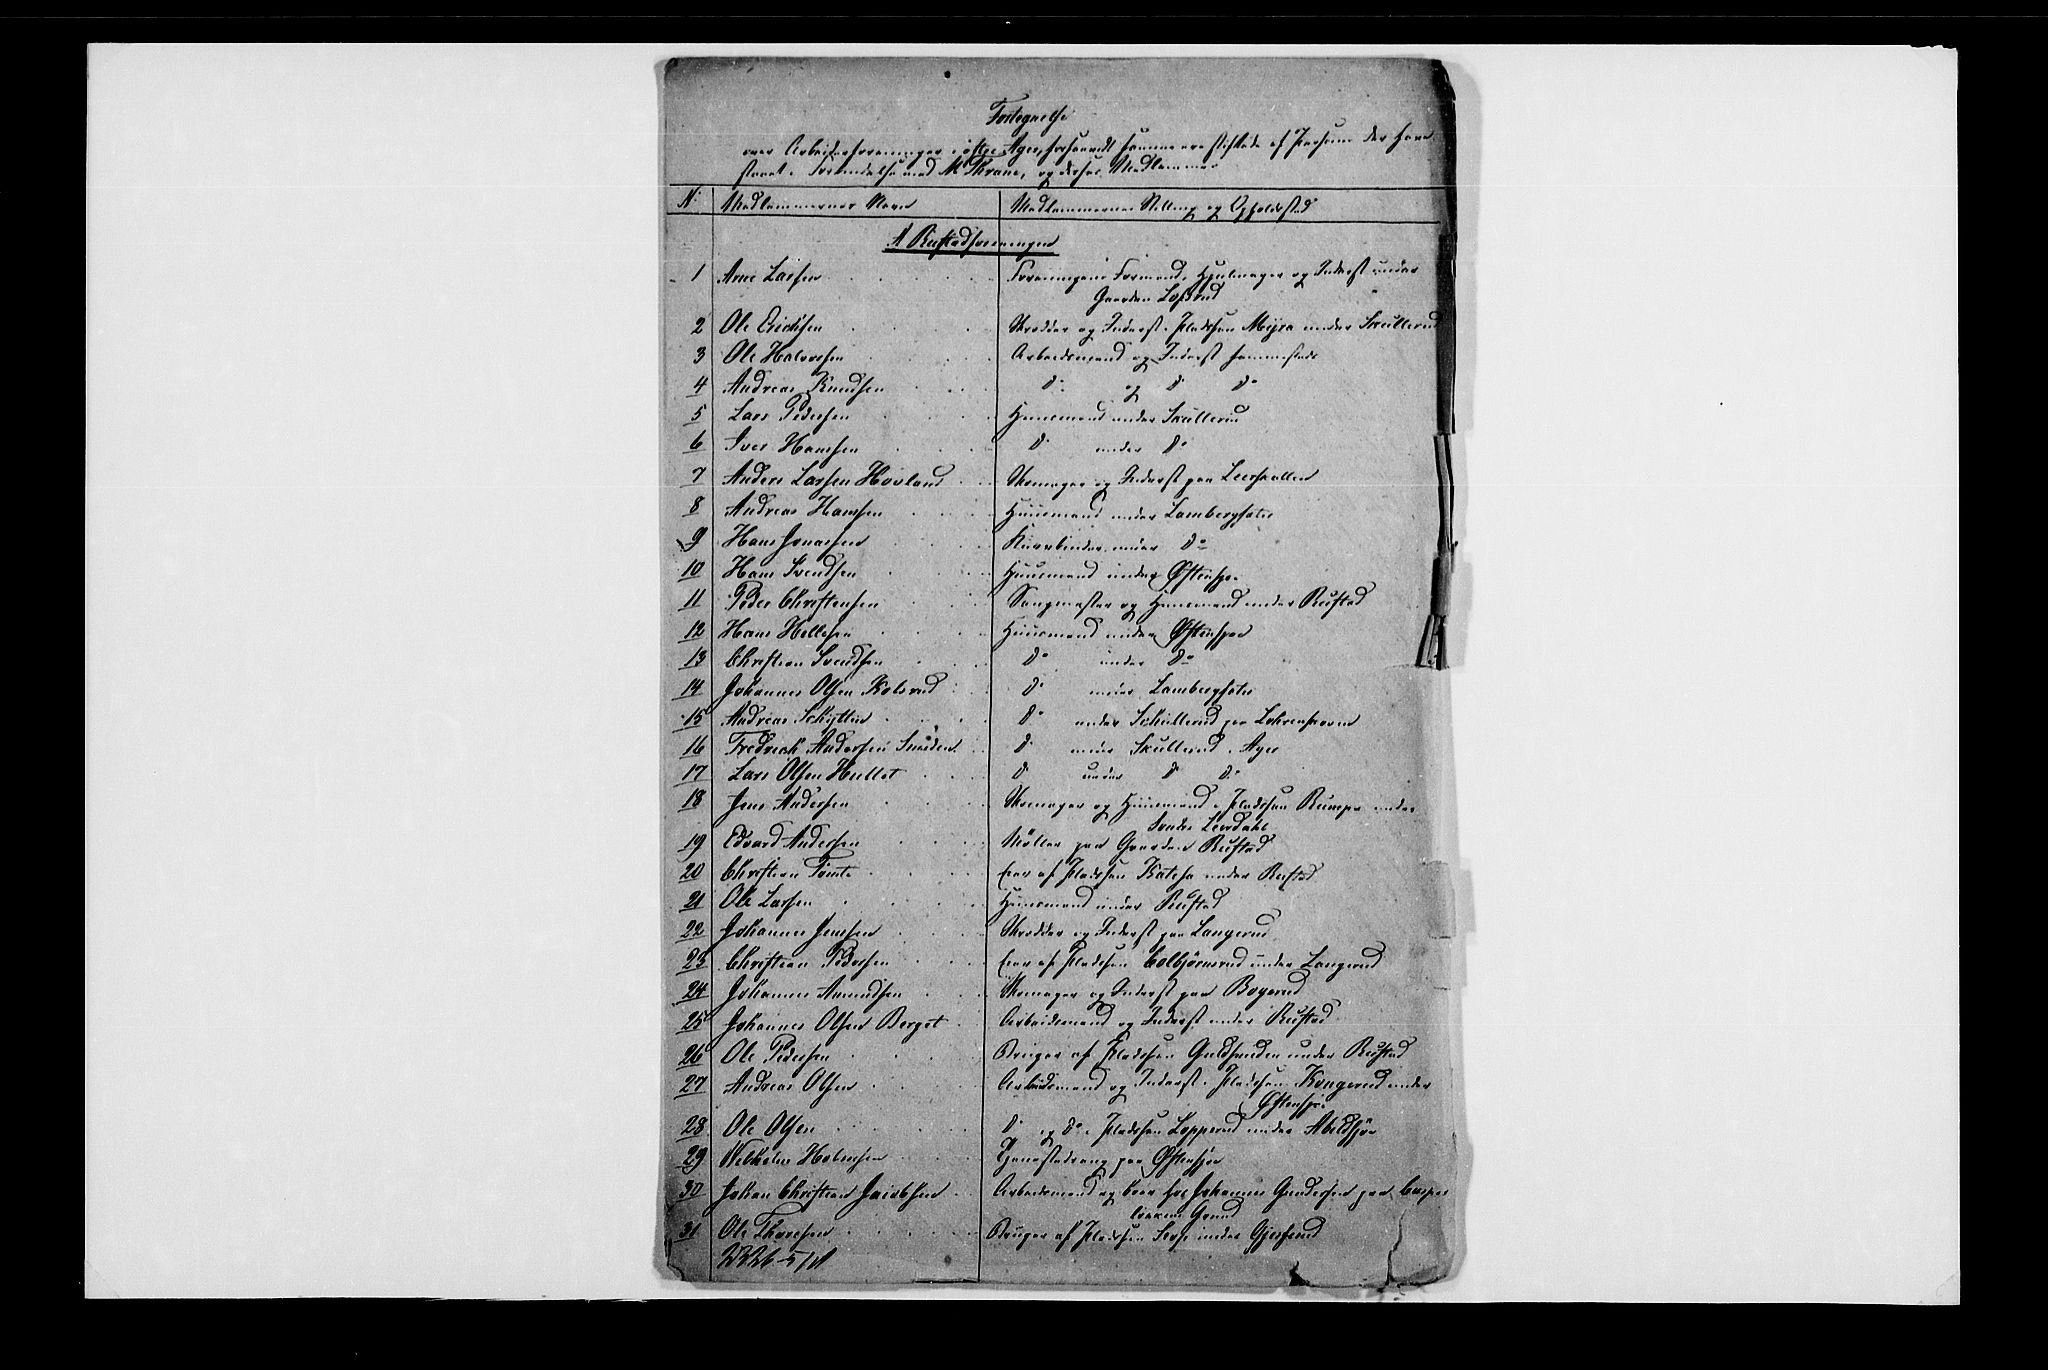 Fortegnelse
over Arbeiderforeninger i østre Ager, forsaavidt samme ere stiftede af Personer der have
staaet i Forbindelse med M Thrane, og deres Medlemmer
N: Medlemmernes Navn Medlemmernes Stilling og Opholdssted
A Rustadforeningen
1 Arne Larsen Foreningens Formand, Hjulmager og Inderst under
Gaarden
2 Ole Ericksen Skrædder og Inderst i Pladsen Myra under Skullerud
3 Ole Halvorsen Arbeidsmand og Inderst sammesteds
4 Andreas Knudsen do og do do
5 Lars Pedersen Huusmand under Skullerud
6 Iver Hansen do under do
7 Anders Larsen Hovland Skomager og Inderst paa Leerskallen
8 Andreas Hansen Huusmand under Lambergsæter
9 Hans Jonassen under do
10 Hans Svendsen Huusmand under Østensjø
11 Peder Christensen Sangmester og Huusmand under Rustad
12 Hans Hellesen Huusmand under Østensjøe
13 Christian Svendsen do under do
14 Johannes Olsen Kolsrud do under Lambergsæter
15 Andreas Schytlin do under Schullerud paa
16 Fredrick Andersen Smeden do under Skullerud i Ager
17 Lars Olsen Hullet do under do do
18 Jens Andersen Skomager og Huusmand i Pladsen Rumpa under
Søndre Leerdahl
19 Edvard Andersen Møller paa Gaarden Rustad
20 Christian Tomte Eier af Pladsen Katesa under Rustad
21 Ole Larsen Huusmand under Rustad
22 Johannes Jensen Skrædder og Inderst paa Langerud
23 Christian Pedersen Eier af Pladsen Colbjørnsrud under Langerud
24 Johannes Amundsen Skomager og Inderst paa Bogerud
25 Johannes Olsen Berget Arbeidsmand og Inderst under Rustad
26 Ole Pedersen Bruger af Pladsen Guldsmeden under Rustad
27 Andreas Olsen Arbeidsmand og Inderst i Pladsen Kongerud under
Østensjø
28 Ole Olsen do og do i Pladsen Lopperud under Abildsjø
29 Wilhelm Halvorsen Tjenestedreng paa Østensjøe
30 Johan Christian Jacobsen Arbeidsmand og boer hos Johannes Gundersen paa
Grund
31 Ole Thoresen Bruger af Pladsen under Gjersrud